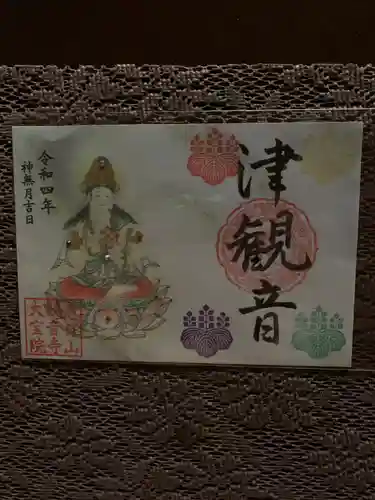 津観音
令和四年
神無月吉日
観音寺
大宝院